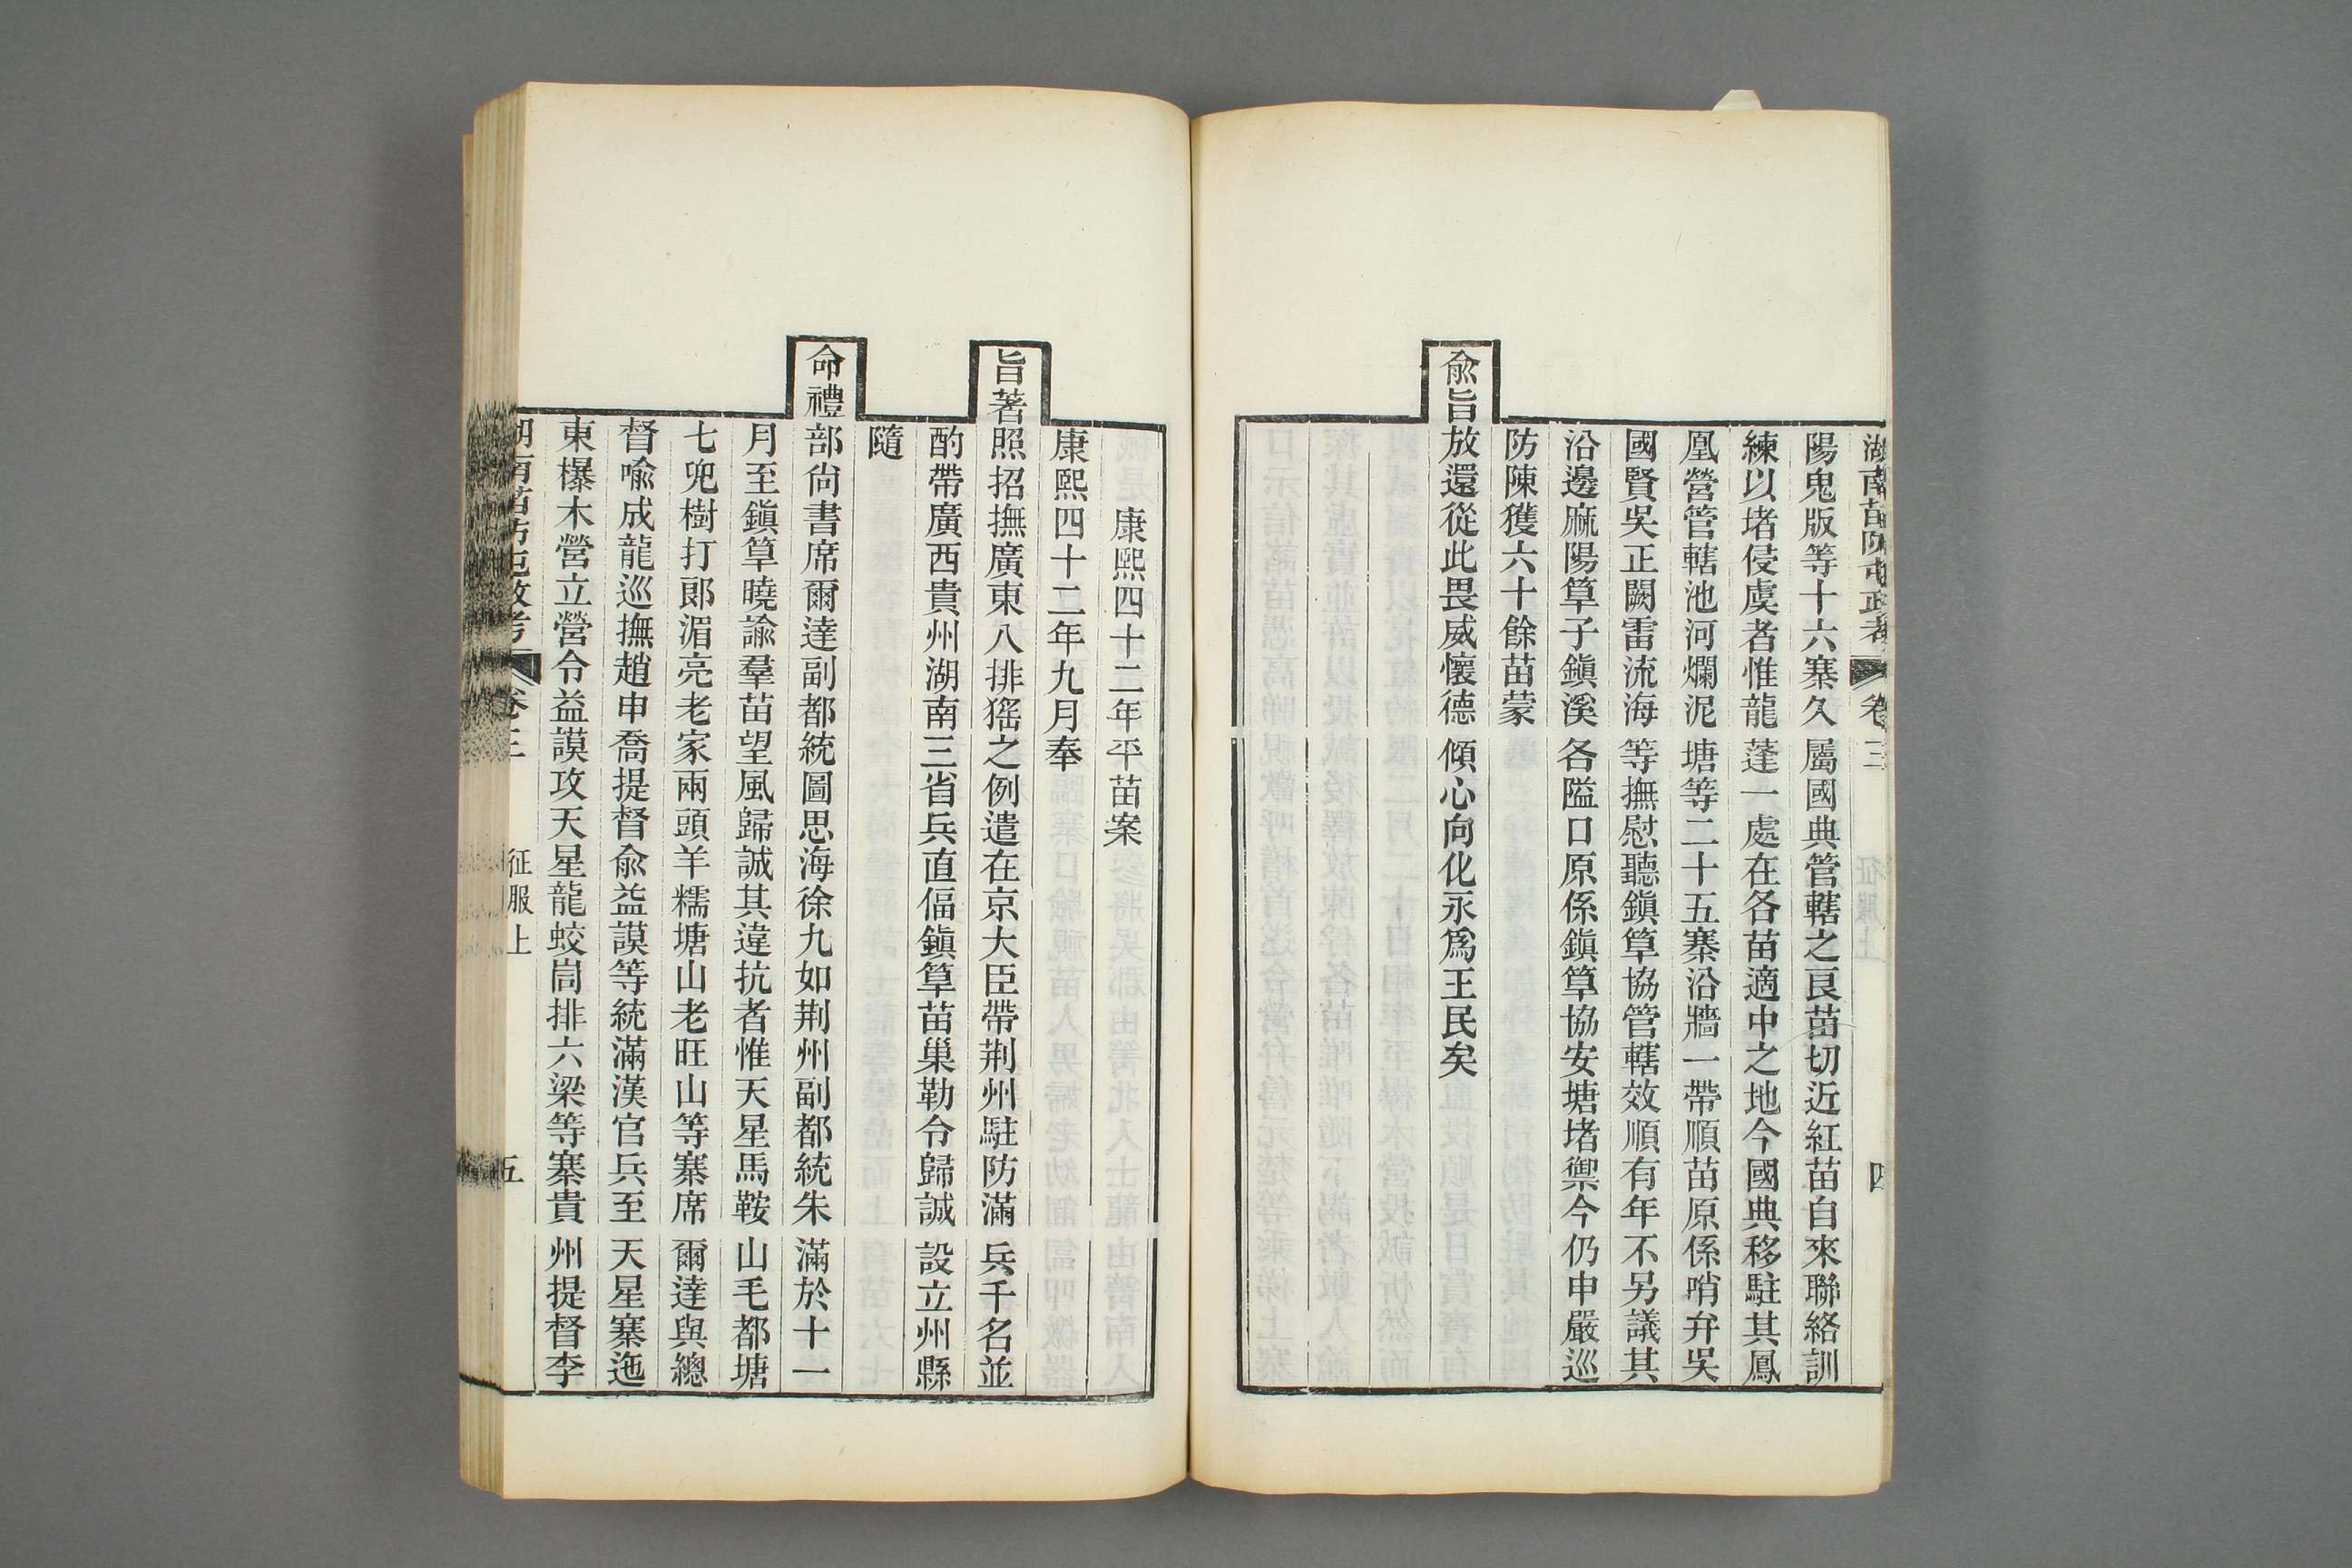 湖南苗防屯政考 卷三 四
陽鬼版等十六寨久屬國典管轄之良苗切近紅苗自來聯絡訓
練以堵侵虞者惟龍蓬一處在各苗適中之地今國典移駐其鳳
凰營管轄池河爛泥塘等二十五寨沿牆一帶順苗原係哨弁吳
國賢吳正闕雷流海等撫慰聽鎭筸協管轄效順有年不另議其
沿邊麻陽筸子鎭溪各隘口原係鎭筸協安塘堵禦今仍申嚴巡
防陳獲六十餘苗蒙
兪旨放還從此畏威懷德傾心向化永爲王民矣
康熙四十二年平苗案
康熙四十二年九月奉
旨著照招撫廣東八排猺之例遣在京大臣帶荆州駐防滿兵千名並
酌帶廣西貴州湖南三省兵直偪鎭筸苗巢勒令歸誠設立州縣
隨
命禮部尙書席爾達副都統圖思海徐九如荆州副都統朱滿於十一
月至鎭筸曉諭羣苗望風歸誠其違抗者惟天星馬鞍山毛都塘
七兜樹打郞湄亮老家兩頭羊糯塘山老旺山等寨席爾達與總
督喻成龍巡撫趙申喬提督兪益謨等統滿漢官兵至天星寨迤
東㰚木營立營令益謨攻天星龍蛟峝排六梁等寨貴州提督李
湖南苗防屯政考 卷三 征服上 五